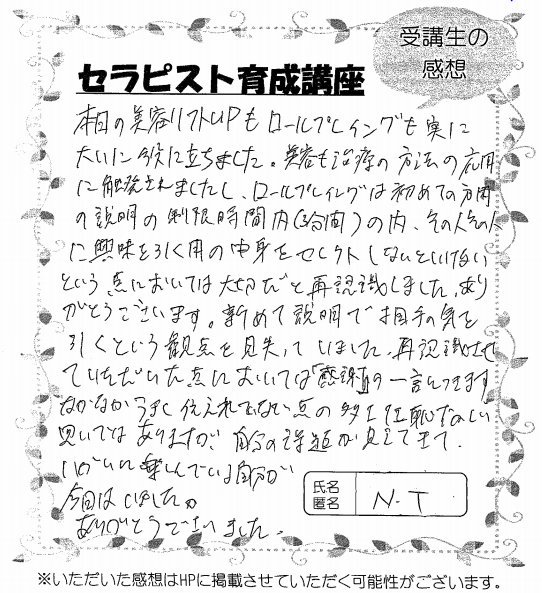 受講生の
感想
セラピスト育成講座
本日の美容リフトUPもロールプレイングも実に
大いに役に立ちました。美容も治療の方法の応用
に触発されましたし、ロールプレイングは初めての方用
の説明の制限時間内の内、その人その人
に興味を引く用の中身をセレクトしないといけない
という点においては大切だと再認識しました。あり
がとうございます。改めて説明で相手の気を
引くという観点を見失っていました。再認識させ
ていただいた点においては「感謝」の一言につきます
なかなかうまく伝えれてない点の多々
思いではありますが、自分の課題が見えてきて、
楽しんでいる自分が
今回はいました。
ありがとうございました。
氏名
匿名
N.T
※いただいた感想はHPに掲載させていただく可能性がございます。